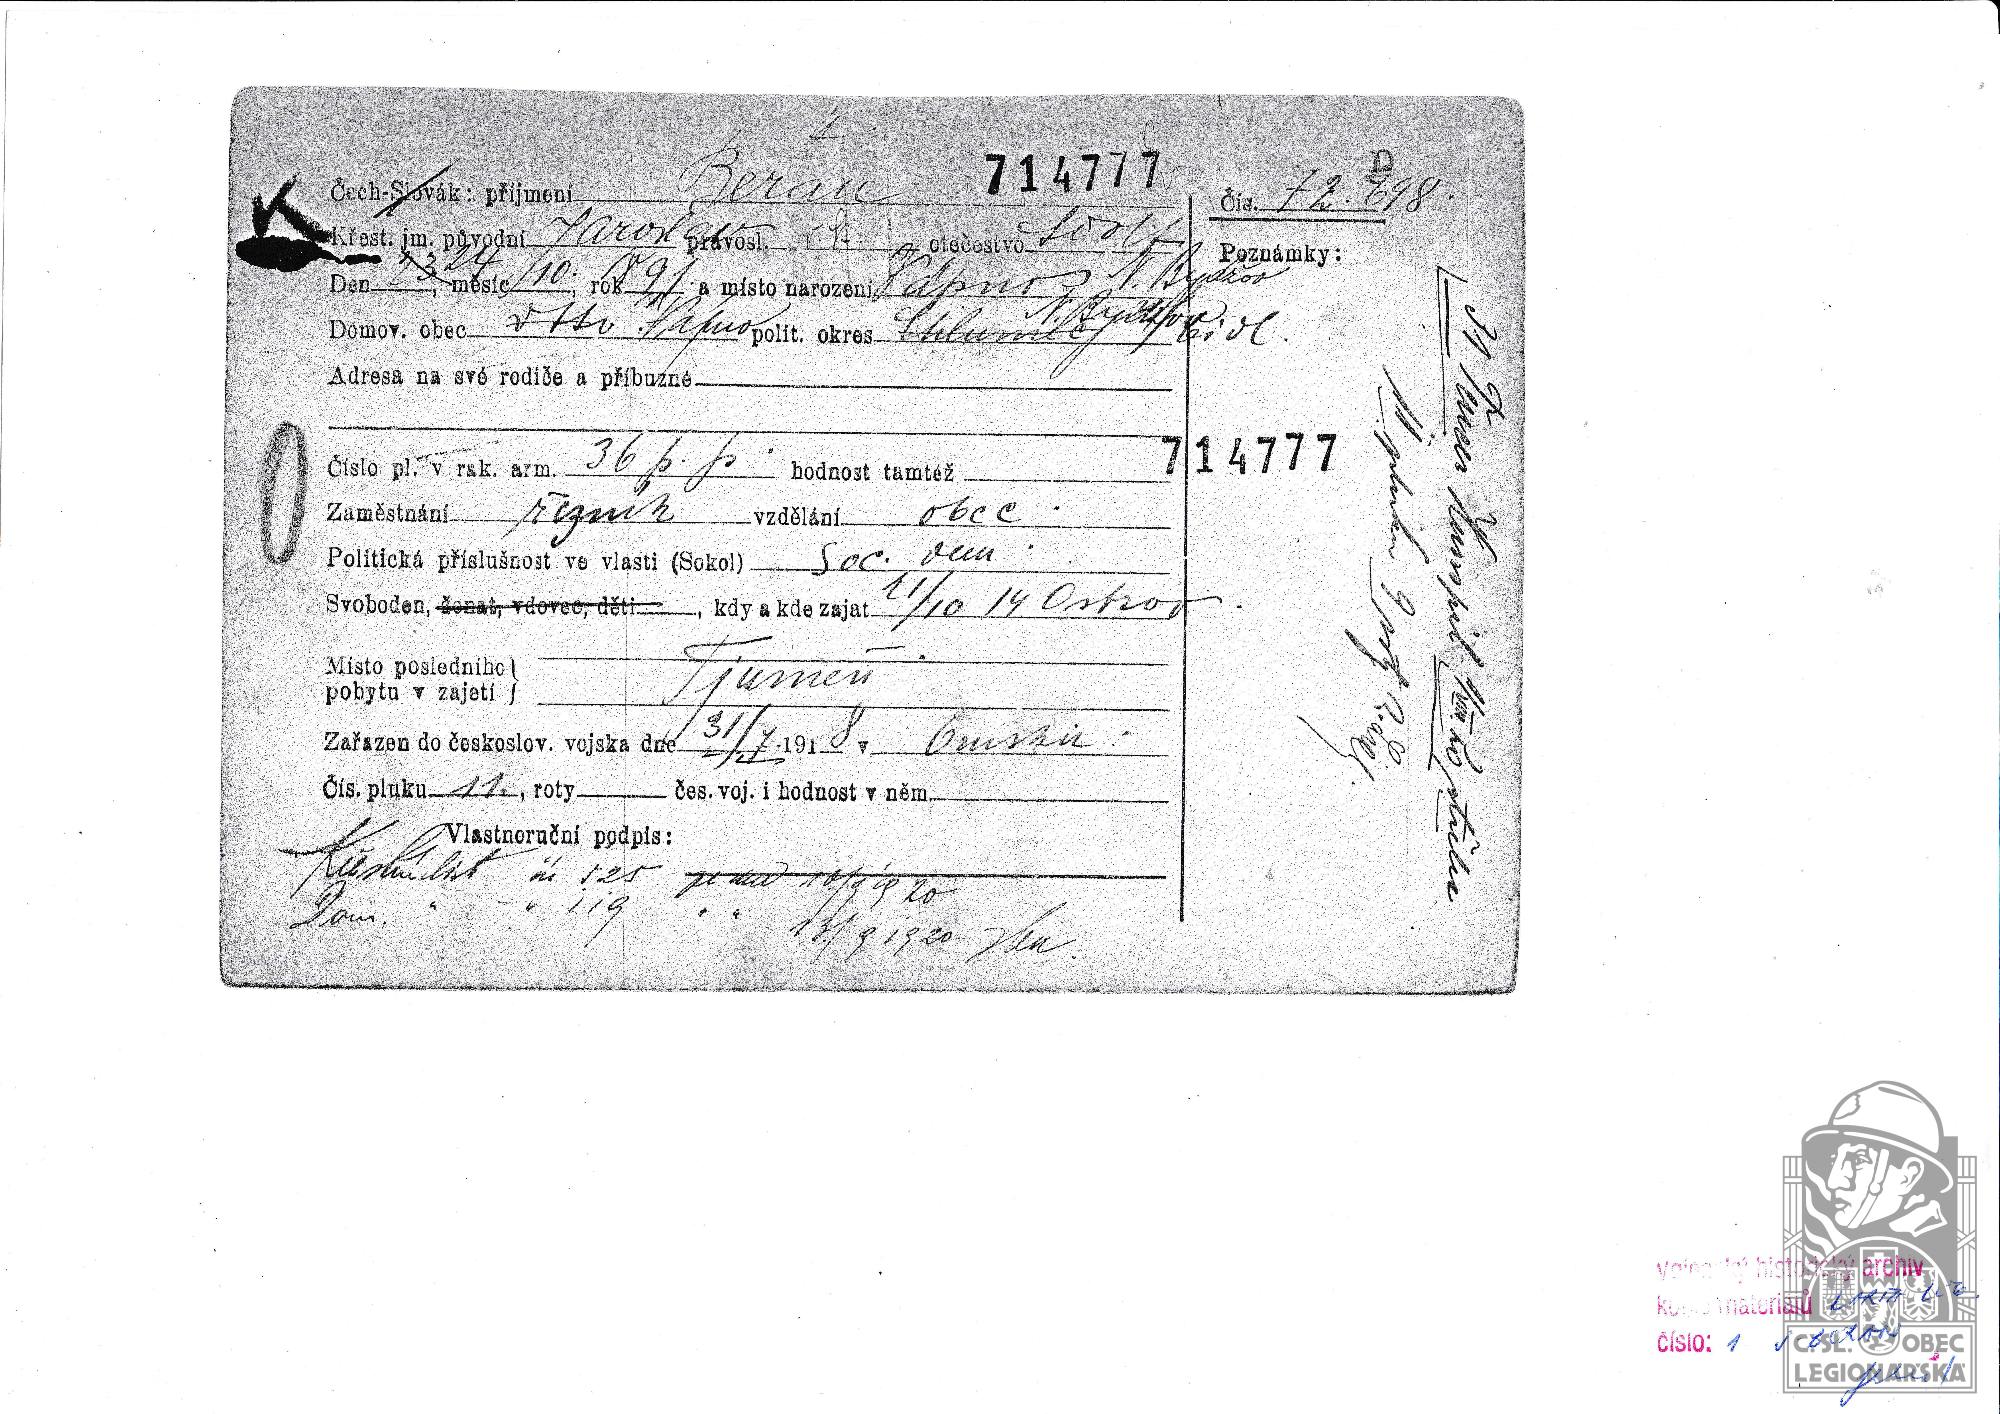 714777
Čech-Slovák: příjmení Beran
Čís. 72.698.
D
K
Křest. jm. původní Jaroslav pravosl. otečestvo
Poznámky:
Den 23 24, měsíc 10., rok 891 a místo narození Vápno N. Bydžov
N. Bydžov
Domov. obec dtto Vápno polit. okres Chlumec Cidl.
Adresa na své rodiče a příbuzné
714777
Číslo pl. v rak. arm. 36 p. p. hodnost tamtéž
Zaměstnání řezník vzdělání obec.
Politická příslušnost ve vlasti (Sokol) Soc. dem.
Svoboden, ženat, vdovec, děti, kdy a kde zajat 21/10 14 Ostrov.
Místo posledního pobytu v zajetí Tjumeň
Zařazen do českoslov. vojska dne 31/7 1918 v Omsku.
Čís. pluku 11., roty čes. voj. i hodnost v něm
Vlastnoruční podpis:
čís 125 10/9 1920
Dom. " " 119 " " 13/9 1920
historický archiv
materiálů
číslo: 1
ČSL. OBEC
LEGIONÁŘSKÁ